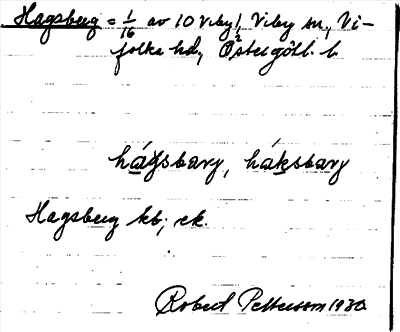 Hagsberg = 1/16 av 10 Viby!, Viby sn, Vi-
folka hd, Östergötl. l.
hágsbarg, háksbarg
Hagsberg kb; ek.
Robert Pettersson 1930.